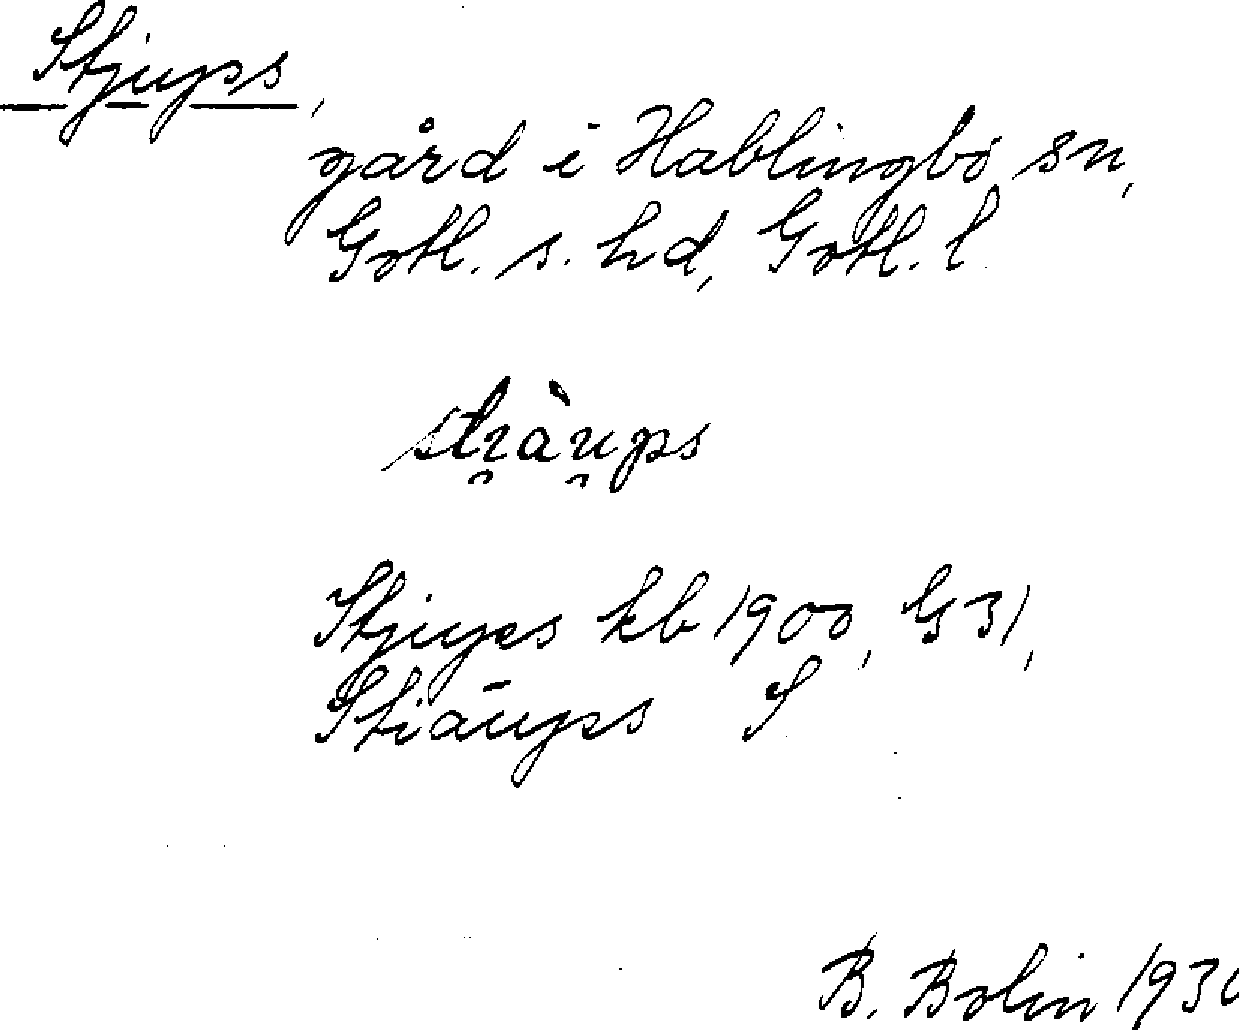 Stjups,
gård i Hablingbo sn,
Gotl. s. hd, Gotl. l
Stjups kb 1900, G 31,
Stiāups S
B. Bolin 1930